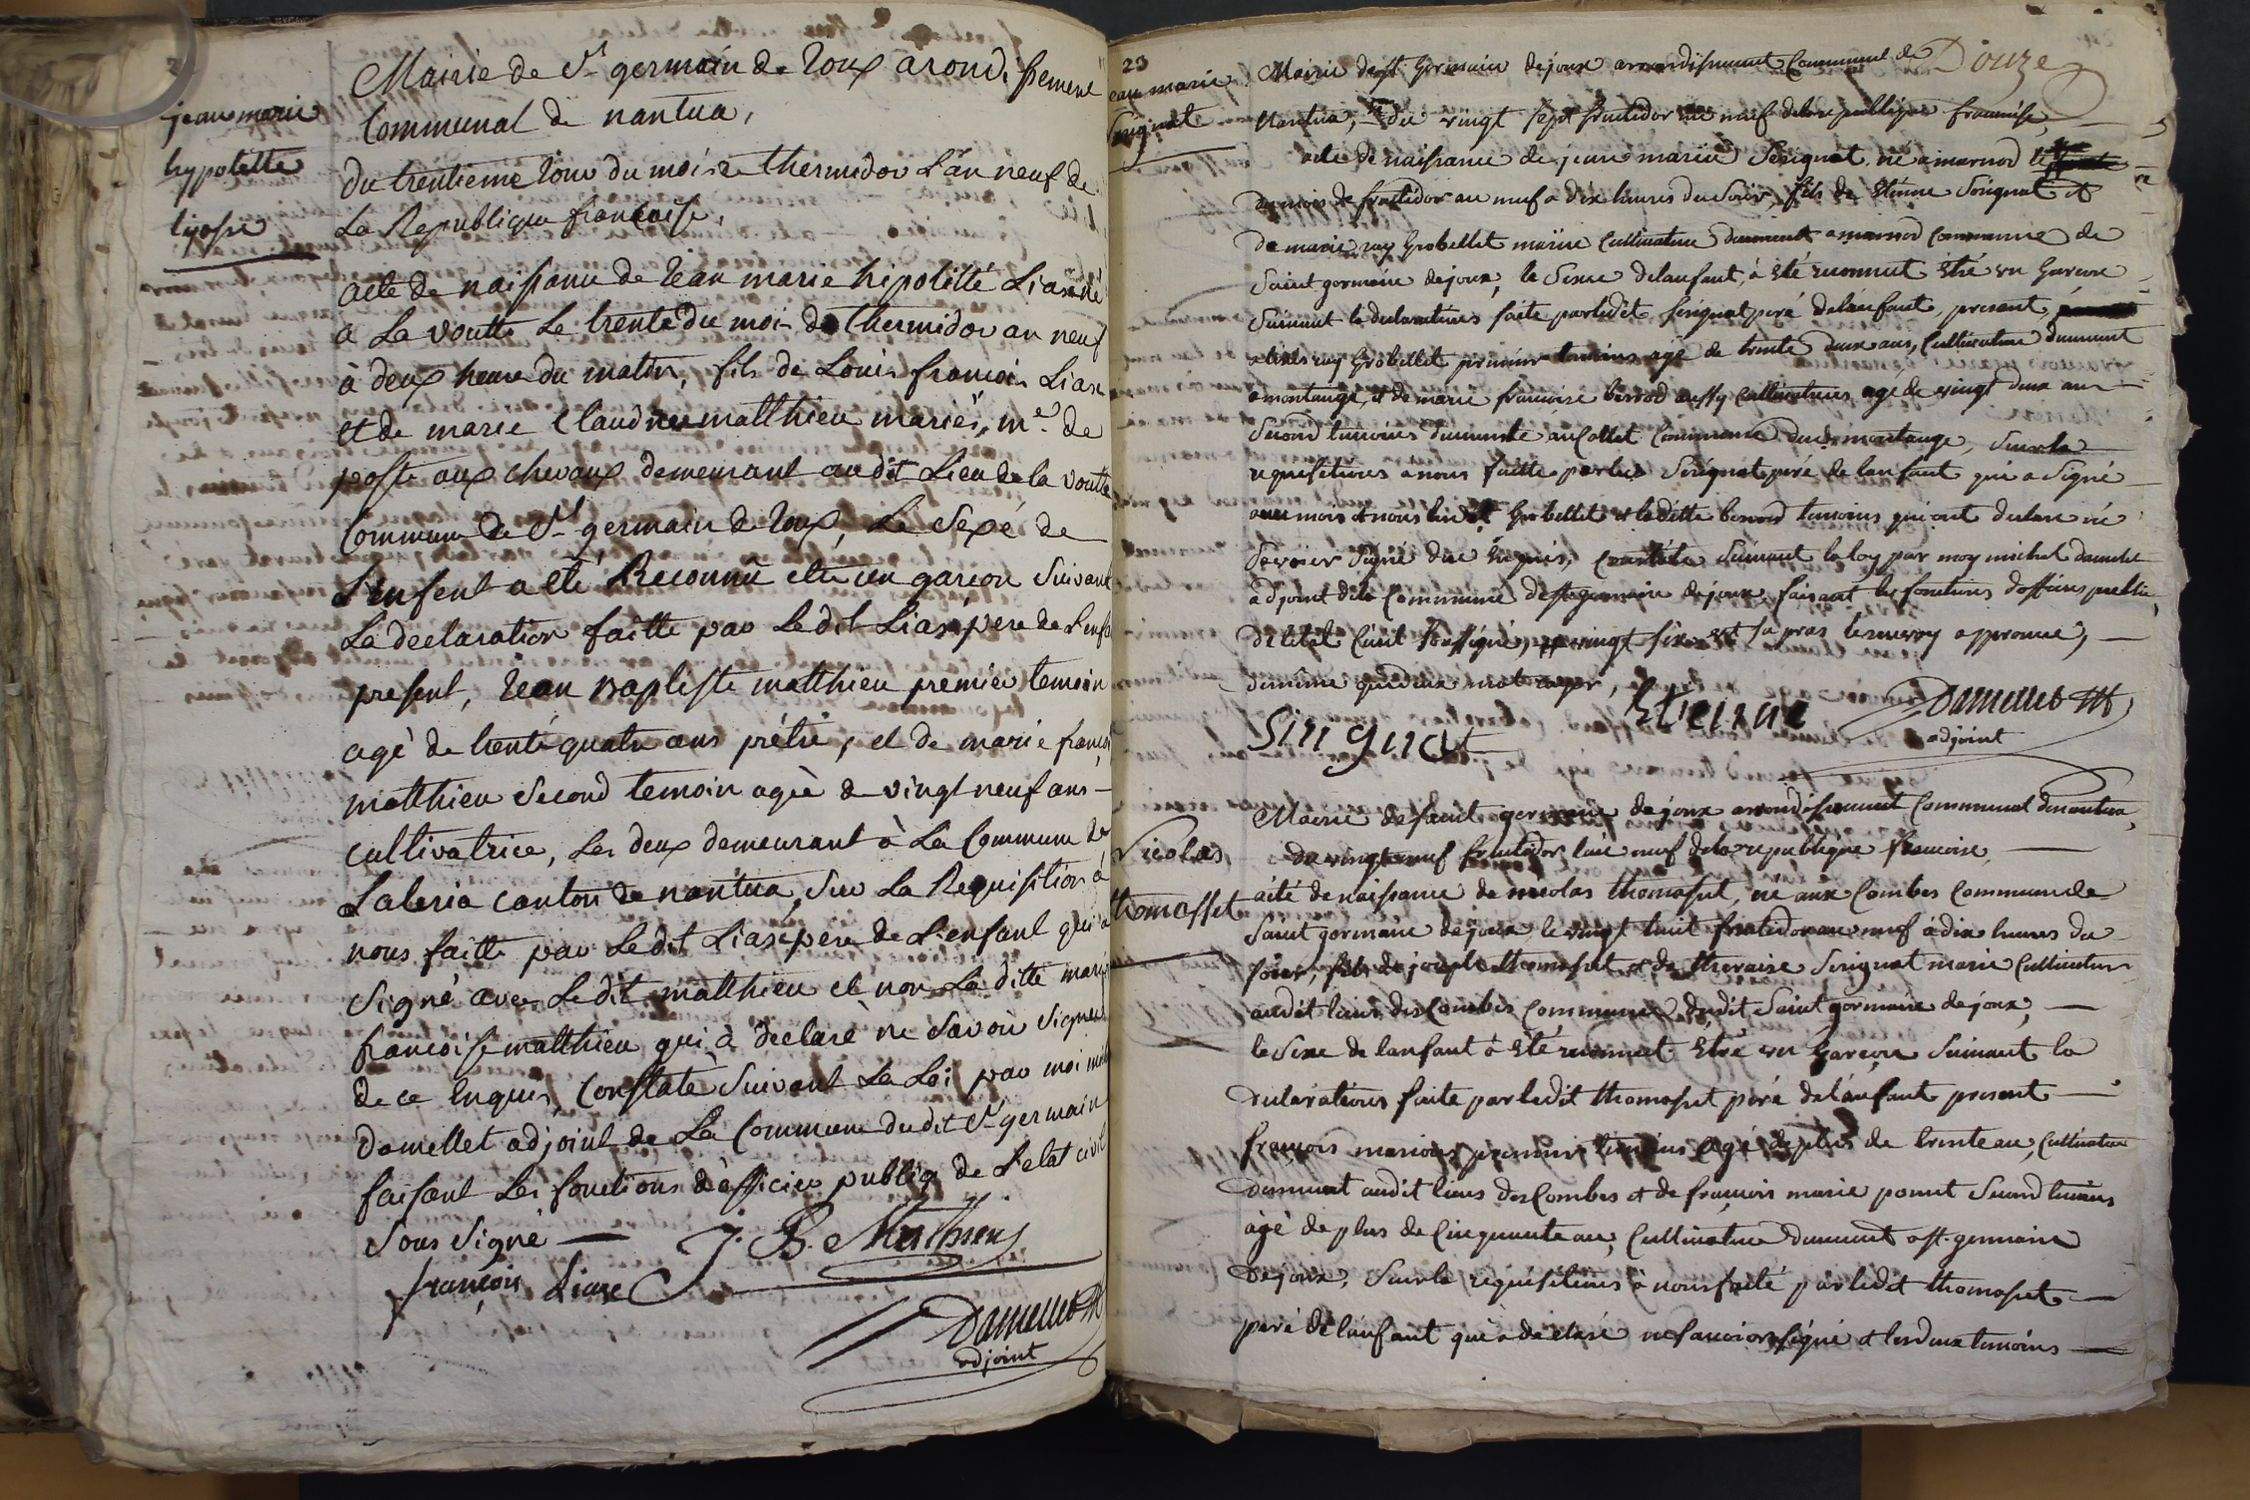 jean marie
hypolitte
liasse
Mairie de St germain de Joux arondissement
Communal de nantua,
du trentieme Jour du mois de thermidor L'an neuf de
La Republique francaise,
acte de naissance de Jean marie hipolitté Liasx né
a La voutte Le trente du mois de thermidor an neuf
à deux heure du matin, fils de Louis francois Liasx
et de marie Claudine matthieu mariés, me de
poste aux chevaux demeurant audit Lieu de la voutte
Commune de St germain de Joux, Le Sexé de
L'enfent a eté Reconnû etre un garcon Suivant
La declaration faitte par Ledit Liasx pere de L'enfa
present, Jean Baptiste matthieu premier temoin
agé de trente quatre ans prétre, et de marie françoi
matthieu Second temoin agée de vingt neuf ans
cultivatrice, Les deux demeurant à La Commune de
Laleria canton de nantua, Sur La Requisition à
nous faitte par Ledit Liasx pere de L'enfant qui a
Signé avec Ledit matthieu et non La ditte marie
francoise matthieu qui à declaré ne Savoir Signer
de ce Enquis, Constaté Suivant La Loi par moi mich
Damellet adjoint de La Commune dudit St germain
faisant Les fonctions d'officier publiq de L'etat civil
Sous Signé
J. B. Matthieu
françois Liasx
Damellet M
adjoint
23
Douze
ean marie
Serignat
Mairie de st Germain dejoux arrondissement Communal de
Nantua, du vingt sept fructidor an neuf dela republique francoise
acte de naissance de jean marie Serignat né a marnod le
du mois de fructidor an neuf a dix heures du Soir, fils de Etienne Serignat et
de marie ray Grobellet marïée Cultivateur demeurent a marnod Commune de
Saint germain dejoux, le Sexe delanfant, à eté reconnut etré un Garcon
Suivant la declarations faite par ledit Serignat peré delanfant, present,
alexis ray Grobellet premier temoins agé de trente deux ans, Cultivateur demeurent
a montange, et de marie francoise berrod aussy Cultivatrices age de vingt deux an
Second temoins demeurante au Collet Commune dud. montange, Surla
requisitions a nous faitte par led Serignat peré de lanfant qui a Signé
avec mois et nous led Grobellet et laditte berrod temoins qui ont declare ne
Savoier Signé due Enquis, Constaté Suivant la loy par moy michel damelet
adjoint dela Commune de st germain dejoux, faisant les fonctions dofficier public
de letat Civil Soussigné, vingt six
dememe que deux mot
Etienne
Sirignat
Damellet M
adjoint
Nicolas
thomasset
Mairie de saint germain dejoux arrondissement Communal denantua,
du vingt neuf fructidor lan neuf dela republique francoise
acté denaissance de nicolas thomasset, ne aux Combes Commune de
Saint germain dejoux le vingt huit fructidor an neuf à dix heures du
soir, fils de joseph thomasset et de theraise Serignat marie Cultivateur
audit lieus des Combes Commune dudit Saint germain dejoux,
le Sexe de lanfant à eté reconnut etré un Garcon Suivant la
declarations faite par ledit thomasset peré delanfant present
françois marions premier temoins agé deplus de trente an, Cultivateur
demeurant audit lieus des Combes et de françois marie ponnet Second temoins
àgé de plus de Cinquante an, Cultivateur demeurent a st. germain
Dejoux, Surla requisitions à nous faité par ledit thomasset
peré delanfant qui à declaré ne savoier signé et les deux temoins